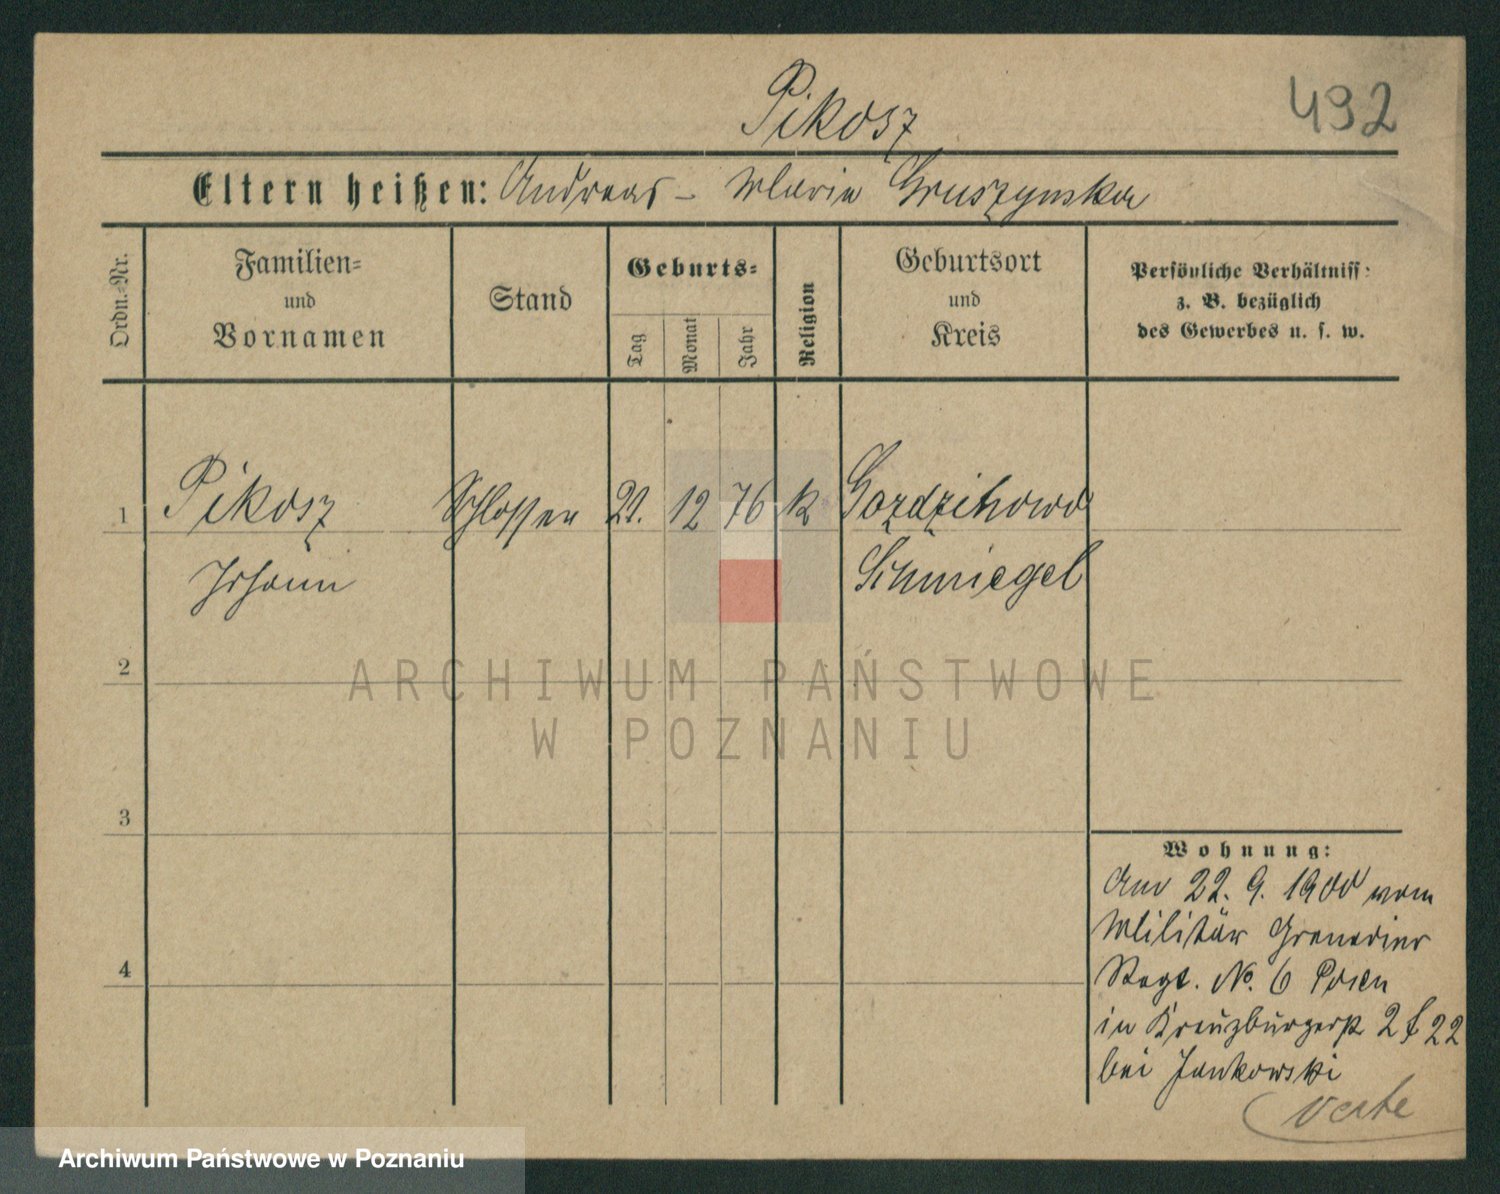 Pikosz
492
Eltern heißen: Andreas - Maria Gruszynska
Ordn.-Nr.
Familien-
und
Vornamen
Stand
Geburts-
Tag
Monat
Jahr
Religion
Geburtsort
und
Kreis
Persönliche Verhältniss:
z. B. bezüglich
des Gewerbes u. s. w.
1 Pikosz Schlosser 21. 12 76 k
Johann Schmiegel
2
ARCHIWUM PAŃSTWOWE
W POZNANIU
3
4
Wohnung:
Am 22. 9. 1900 vom
Militär Grenadier
Regt. No. 6 Posen
in Kreuzburgerstr 2
bei Jankowski
verte
Archiwum Państwowe w Poznaniu